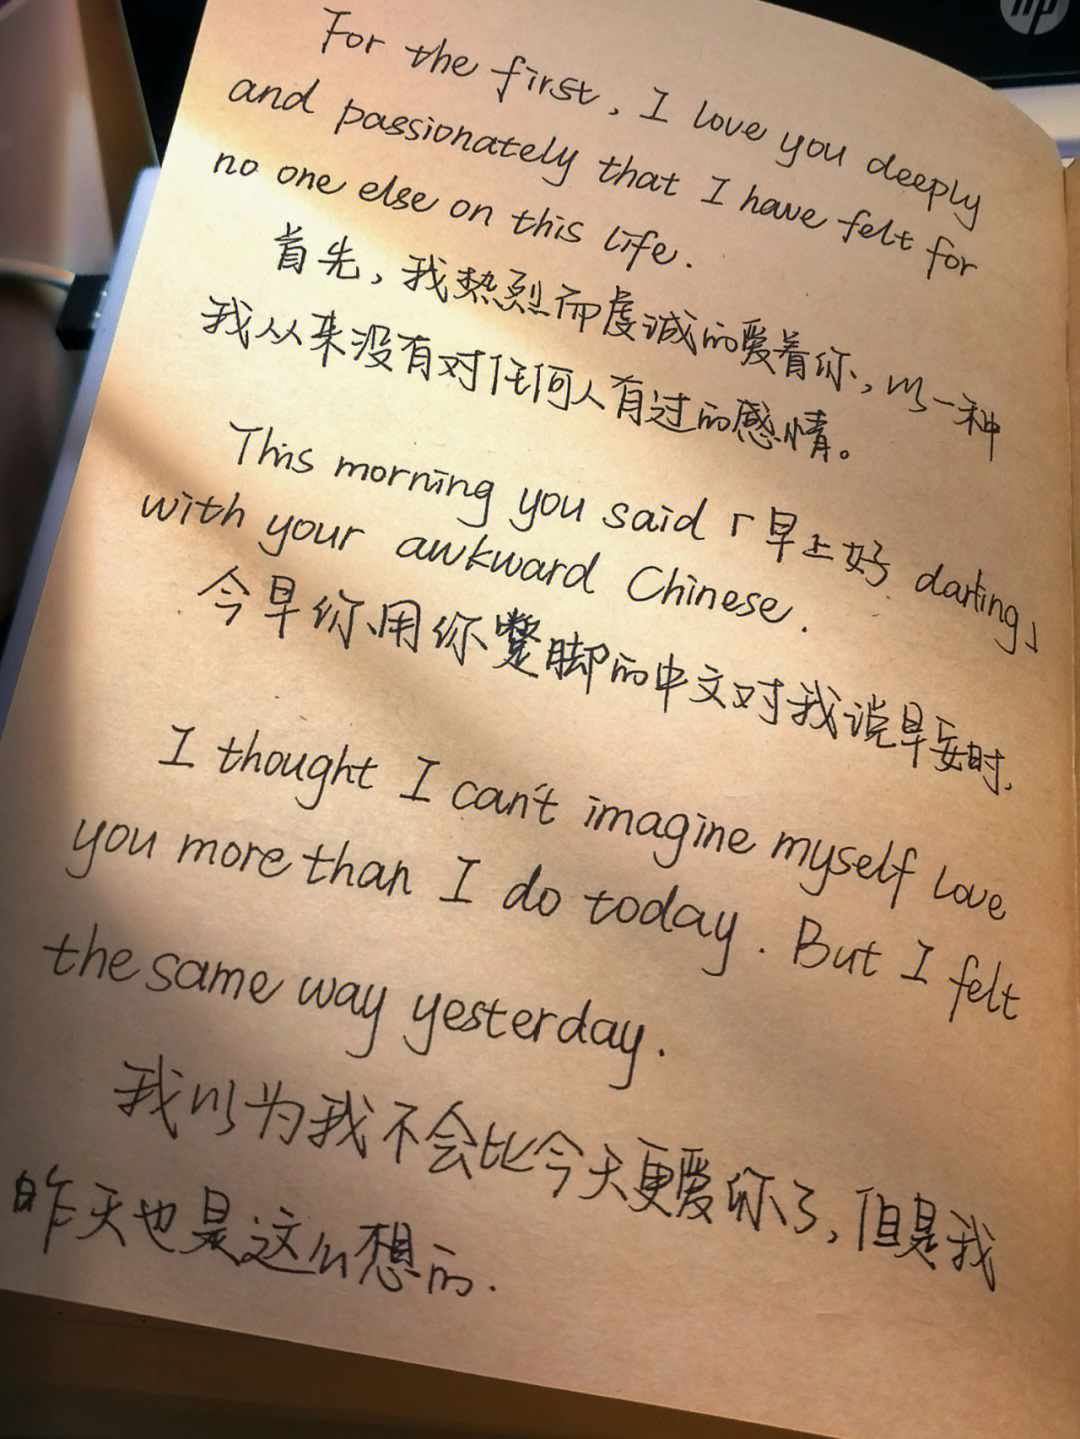 hp
For the first, I love you deeply
and passionately that I have felt for
no one else on this life.
首先,我热烈而虔诚的爱着你,以一种
我从来没有对任何人有过的感情。
This morning you said「早上好 darling」
with your awkward Chinese.
今早你用你蹩脚的中文对我说早安时,
I thought I can't imagine myself love
you more than I do today. But I felt
the same way yesterday.
我以为我不会比今天更爱你了,但是我
昨天也是这么想的.